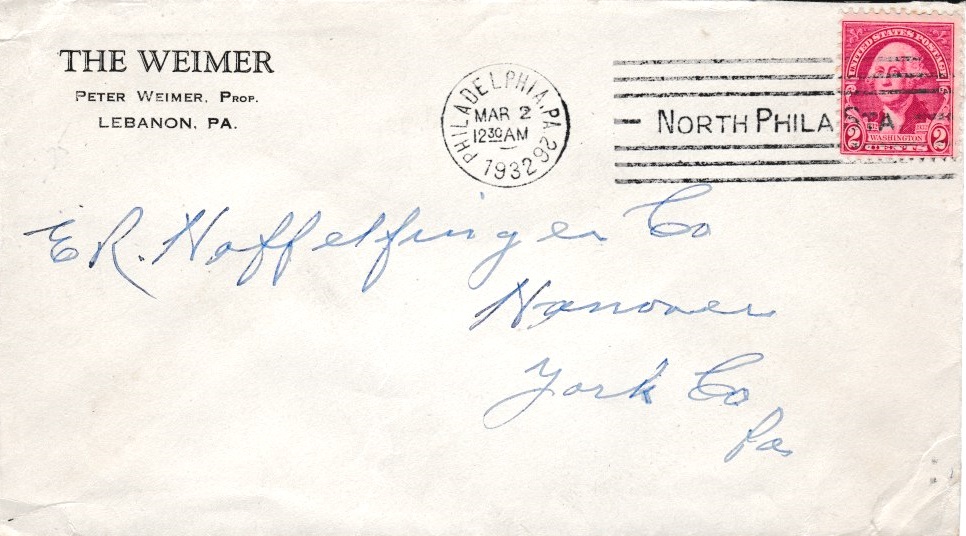 THE WEIMER
PETER WEIMER, PROP.
LEBANON, PA.
PHILADELPHIA, PA. 26
MAR 2
12 30 AM
1932
NORTH PHILA STA
UNITED STATES POSTAGE
WASHINGTON
2 CENTS 2
E R. Hoffelfinger Co
Hanover
York Co
Pa